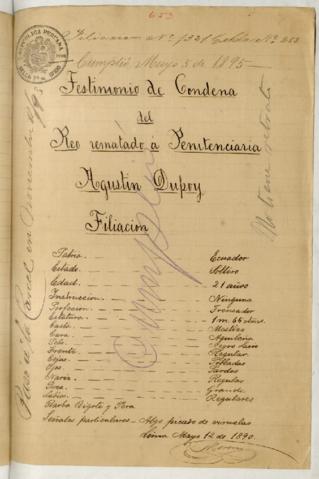 653
Filiacion Nº 1331 Celda Nº 253
Cumplió Mayo 5 de 1895
Testimonio de Condena
del
Reo rematado a Penitenciaria
Agustin Dupoy
Filiación
Patria Ecuador
Estado Soltero
Edad 21 años
Instruccion Ninguna
Profecion
Estatura 1 m. 66
Casta Mestiza
Cara Aguileña
Pelo Negro lacio
Frente Regular
Cejas Pobladas
Ojos Pardos
Nariz Regular
Boca Grande
Labios Regulares
Barba Bigote y Pera
Señales particulares - Algo picado de viruelas
Lima Mayo 12 de 1890.
No tiene retrato
Cumplió
Paso a la Carcel en Noviembre